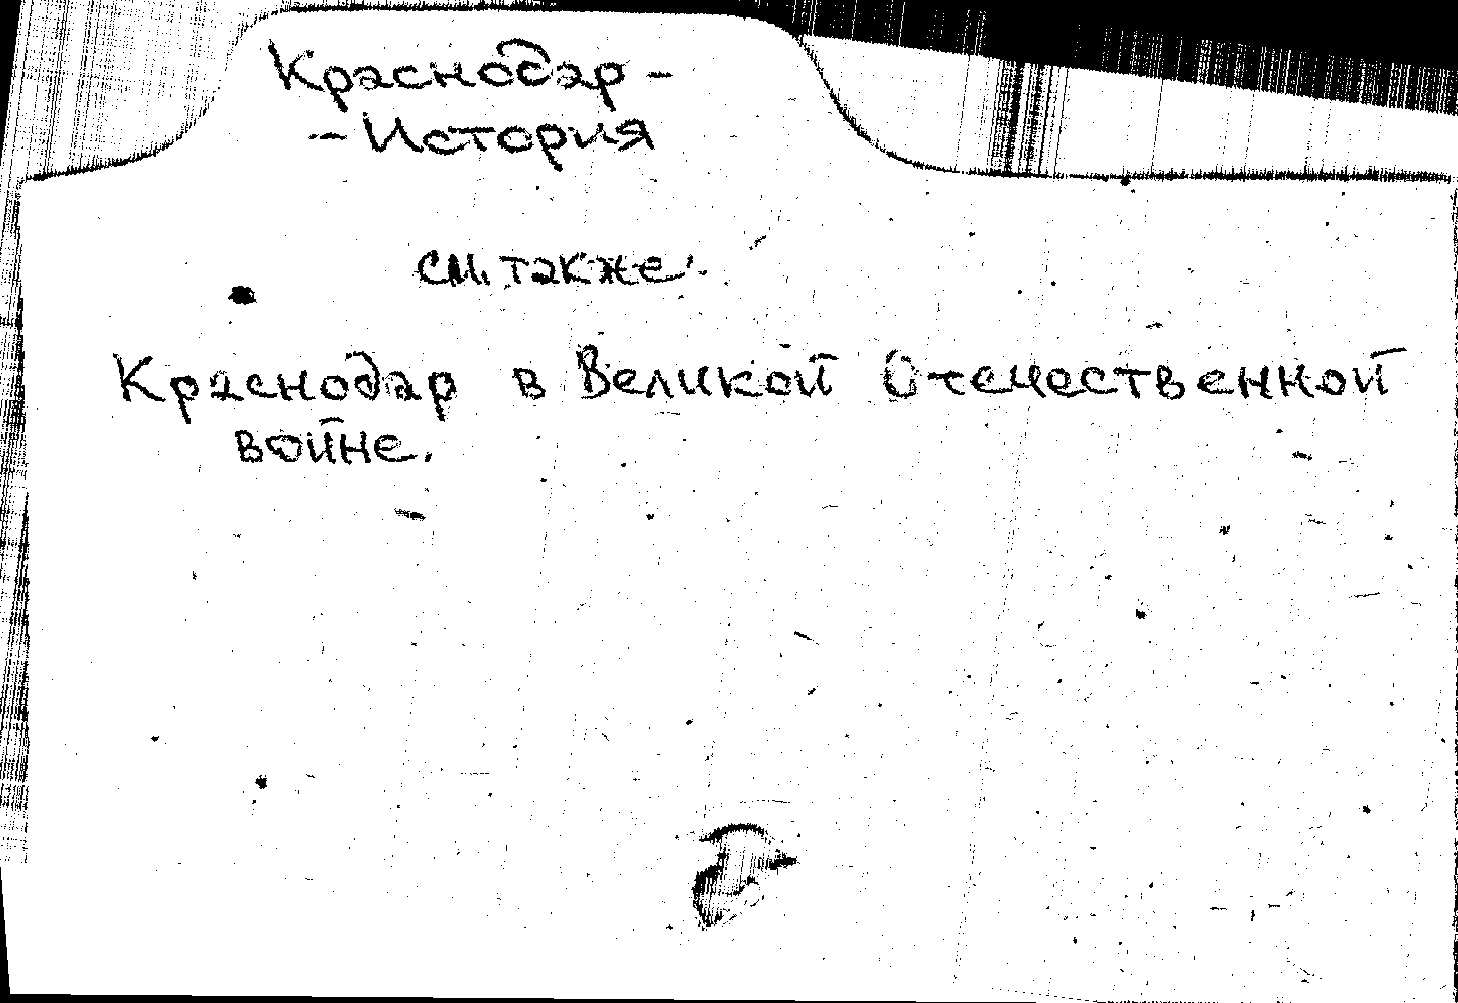 Краснодар –
– История
см. также:
Краснодар в Великой Отечественной
войне.